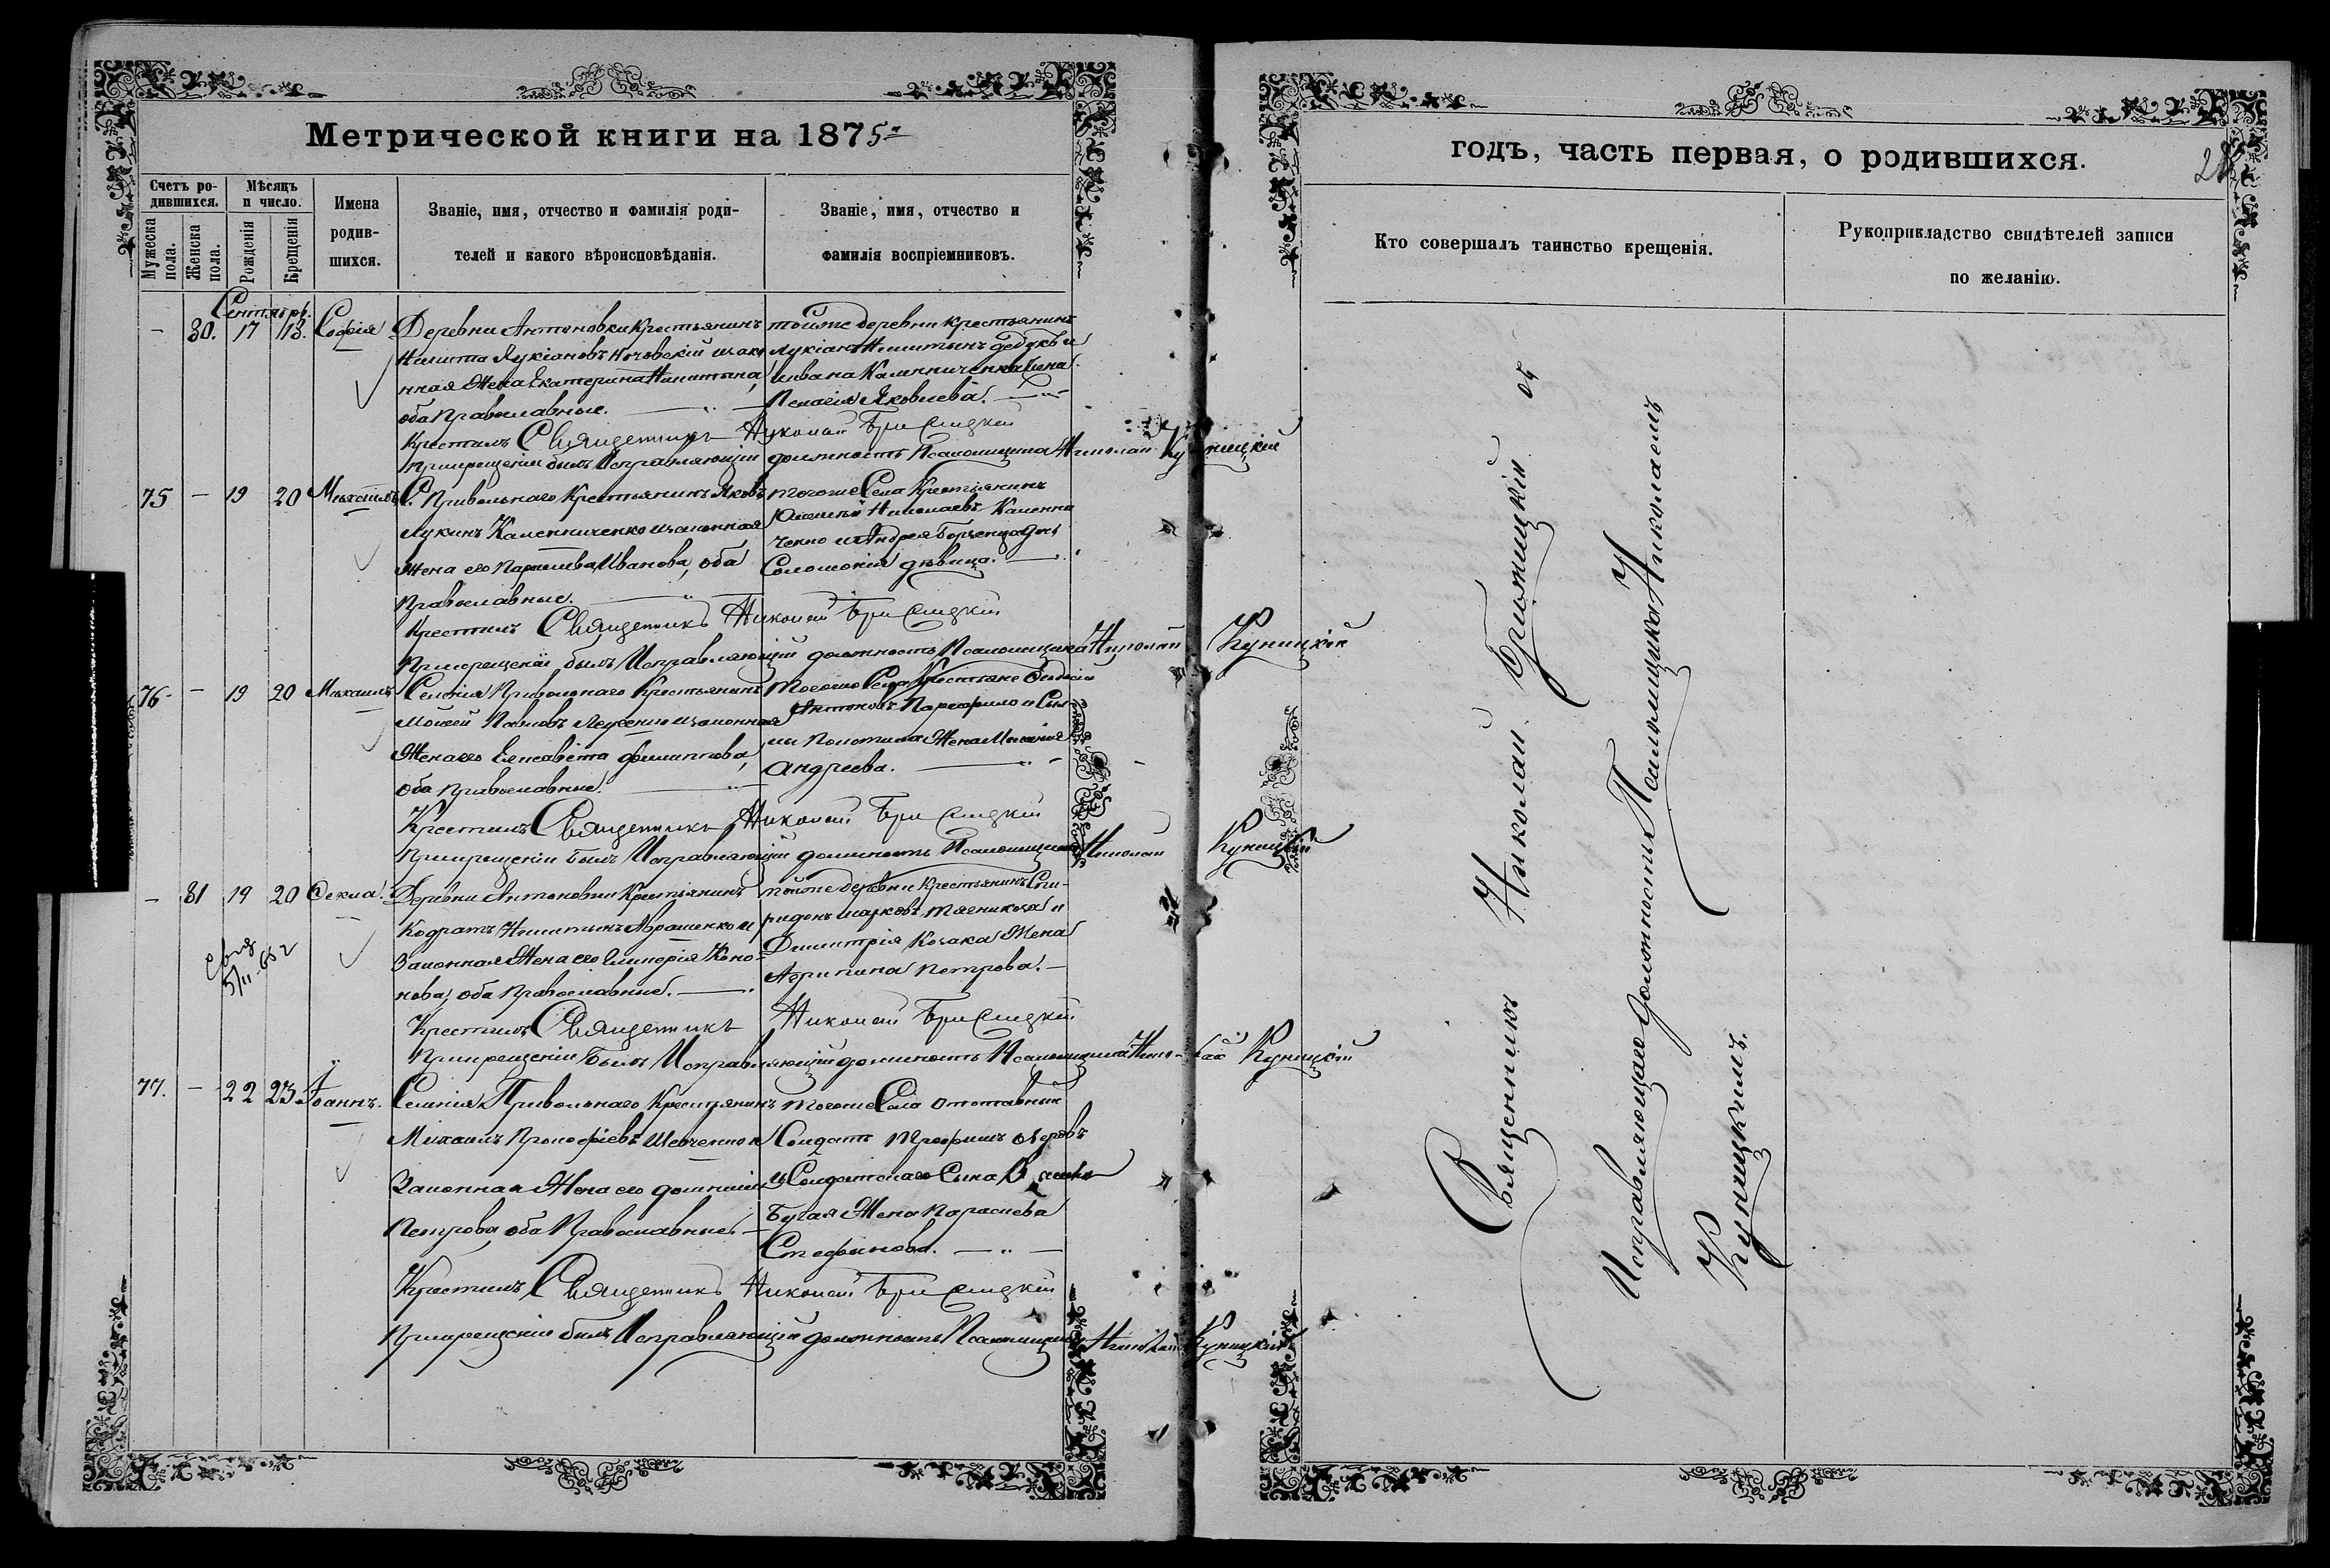 Метрической книги на 1875
годъ, часть первая, о родившихся.
28
Счетъ родившихся.
Мужеска пола.
Женска пола.
Мѣсяцъ и число.
Рожденія
Крещенія
Имена родившихся.
Званіе, имя, отчество и фамилія родителей и какого вѣроисповѣданія.
Званіе, имя, отчество и фамилія воспріемниковъ.
Кто совершалъ таинство крещенія.
Рукоприкладство свидѣтелей записи по желанію.
Сентябрь.
– 80. 17 18. Софія
Деревни Антоновки Крестьянинъ
Никита Лукіановъ
нная Жена Екатерина Никитина,
оба Православные.
тойже деревни крестьянинъ
Лукіанъ Никитинъ
Ивана Калениченка Жена
Пелагія Яковлева.
Крестилъ Священникъ Николай
При крещеніи былъ Исправляющій должность Псаломщика Николай Куницкій
75 – 19 20 Михаилъ
С. Привольнаго Крестьянинъ Яковъ
Лукинъ Калениченко и законная
Жена его Параскева Иванова, оба
Православные.
тогоже Села Крестьянинъ
Николаевъ Калени
ченко и Андрея дочь
Соломонія дѣвица.
Крестилъ Священникъ Николай
При крещеніи былъ Исправляющій должность Псаломщика Николай Куницкій
76. – 19 20 Михаилъ
Селенія Привольнаго Крестьянинъ
Моисей Павловъ и законная
Жена его Елисавета Филиппова,
оба Православные.
тогоже Села Крестьяне Феодосій
Антоновъ Парфило и
Жена Меланія
Андреева.
Крестилъ Священникъ Николай
При крещеніи былъ Исправляющій должность Псаломщика Николай Куницкій
– 81 19 20 Фекла.
Деревни Антоновки Крестьянинъ
Кодратъ Никитинъ Авраменко и
Законная Жена его Гликерія Коно-
нова, оба Православные.
тойже деревни Крестьянинъ Спи-
ридонъ Марковъ и
Димитрія Козака Жена
Агрипина Петрова.
Крестилъ Священникъ Николай
При крещеніи былъ Исправляющій должность Псаломщика Николай Куницкій
77. – 22 23 Іоаннъ.
Селенія Привольнаго Крестьянинъ
Михаилъ Прокофіевъ Шевченко и
Законная Жена его
Петрова, оба Православные.
тогоже Села отставный
Солдатъ Трофимъ
и Солдатскаго Сына
Бугая Жена Параскева
Стефанова.
Крестилъ Священникъ Николай
При крещеніи былъ Исправляющій должность Псаломщика Николай Куницкій
Священникъ Николай
Исправляющаго Должность Псаломщика Николаемъ
Куницкимъ.